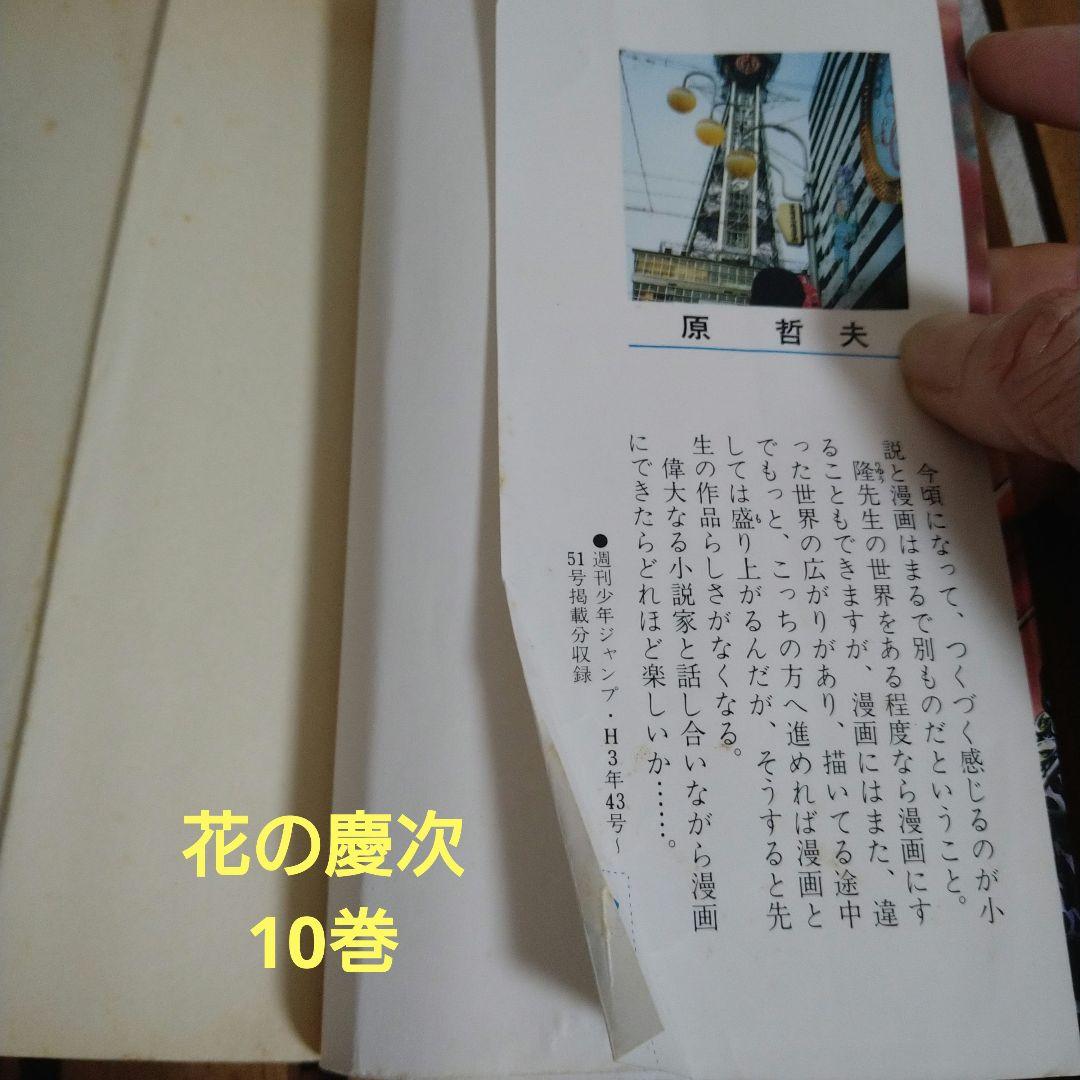 原 哲夫
今頃になって、つくづく感じるのが小
説と漫画はまるで別ものだということ。
隆先生の世界をある程度なら漫画にす
りゅう
ることもできますが、漫画にはまた、違
った世界の広がりがあり、描いてる途中
でもっと、こっちの方へ進めれば漫画と
しては盛り上がるんだが、そうすると先
も
生の作品らしさがなくなる。
偉大なる小説家と話し合いながら漫画
にできたらどれほど楽しいか……。
●週刊少年ジャンプ・H3年43号〜
51号掲載分収録
花の慶次
10巻